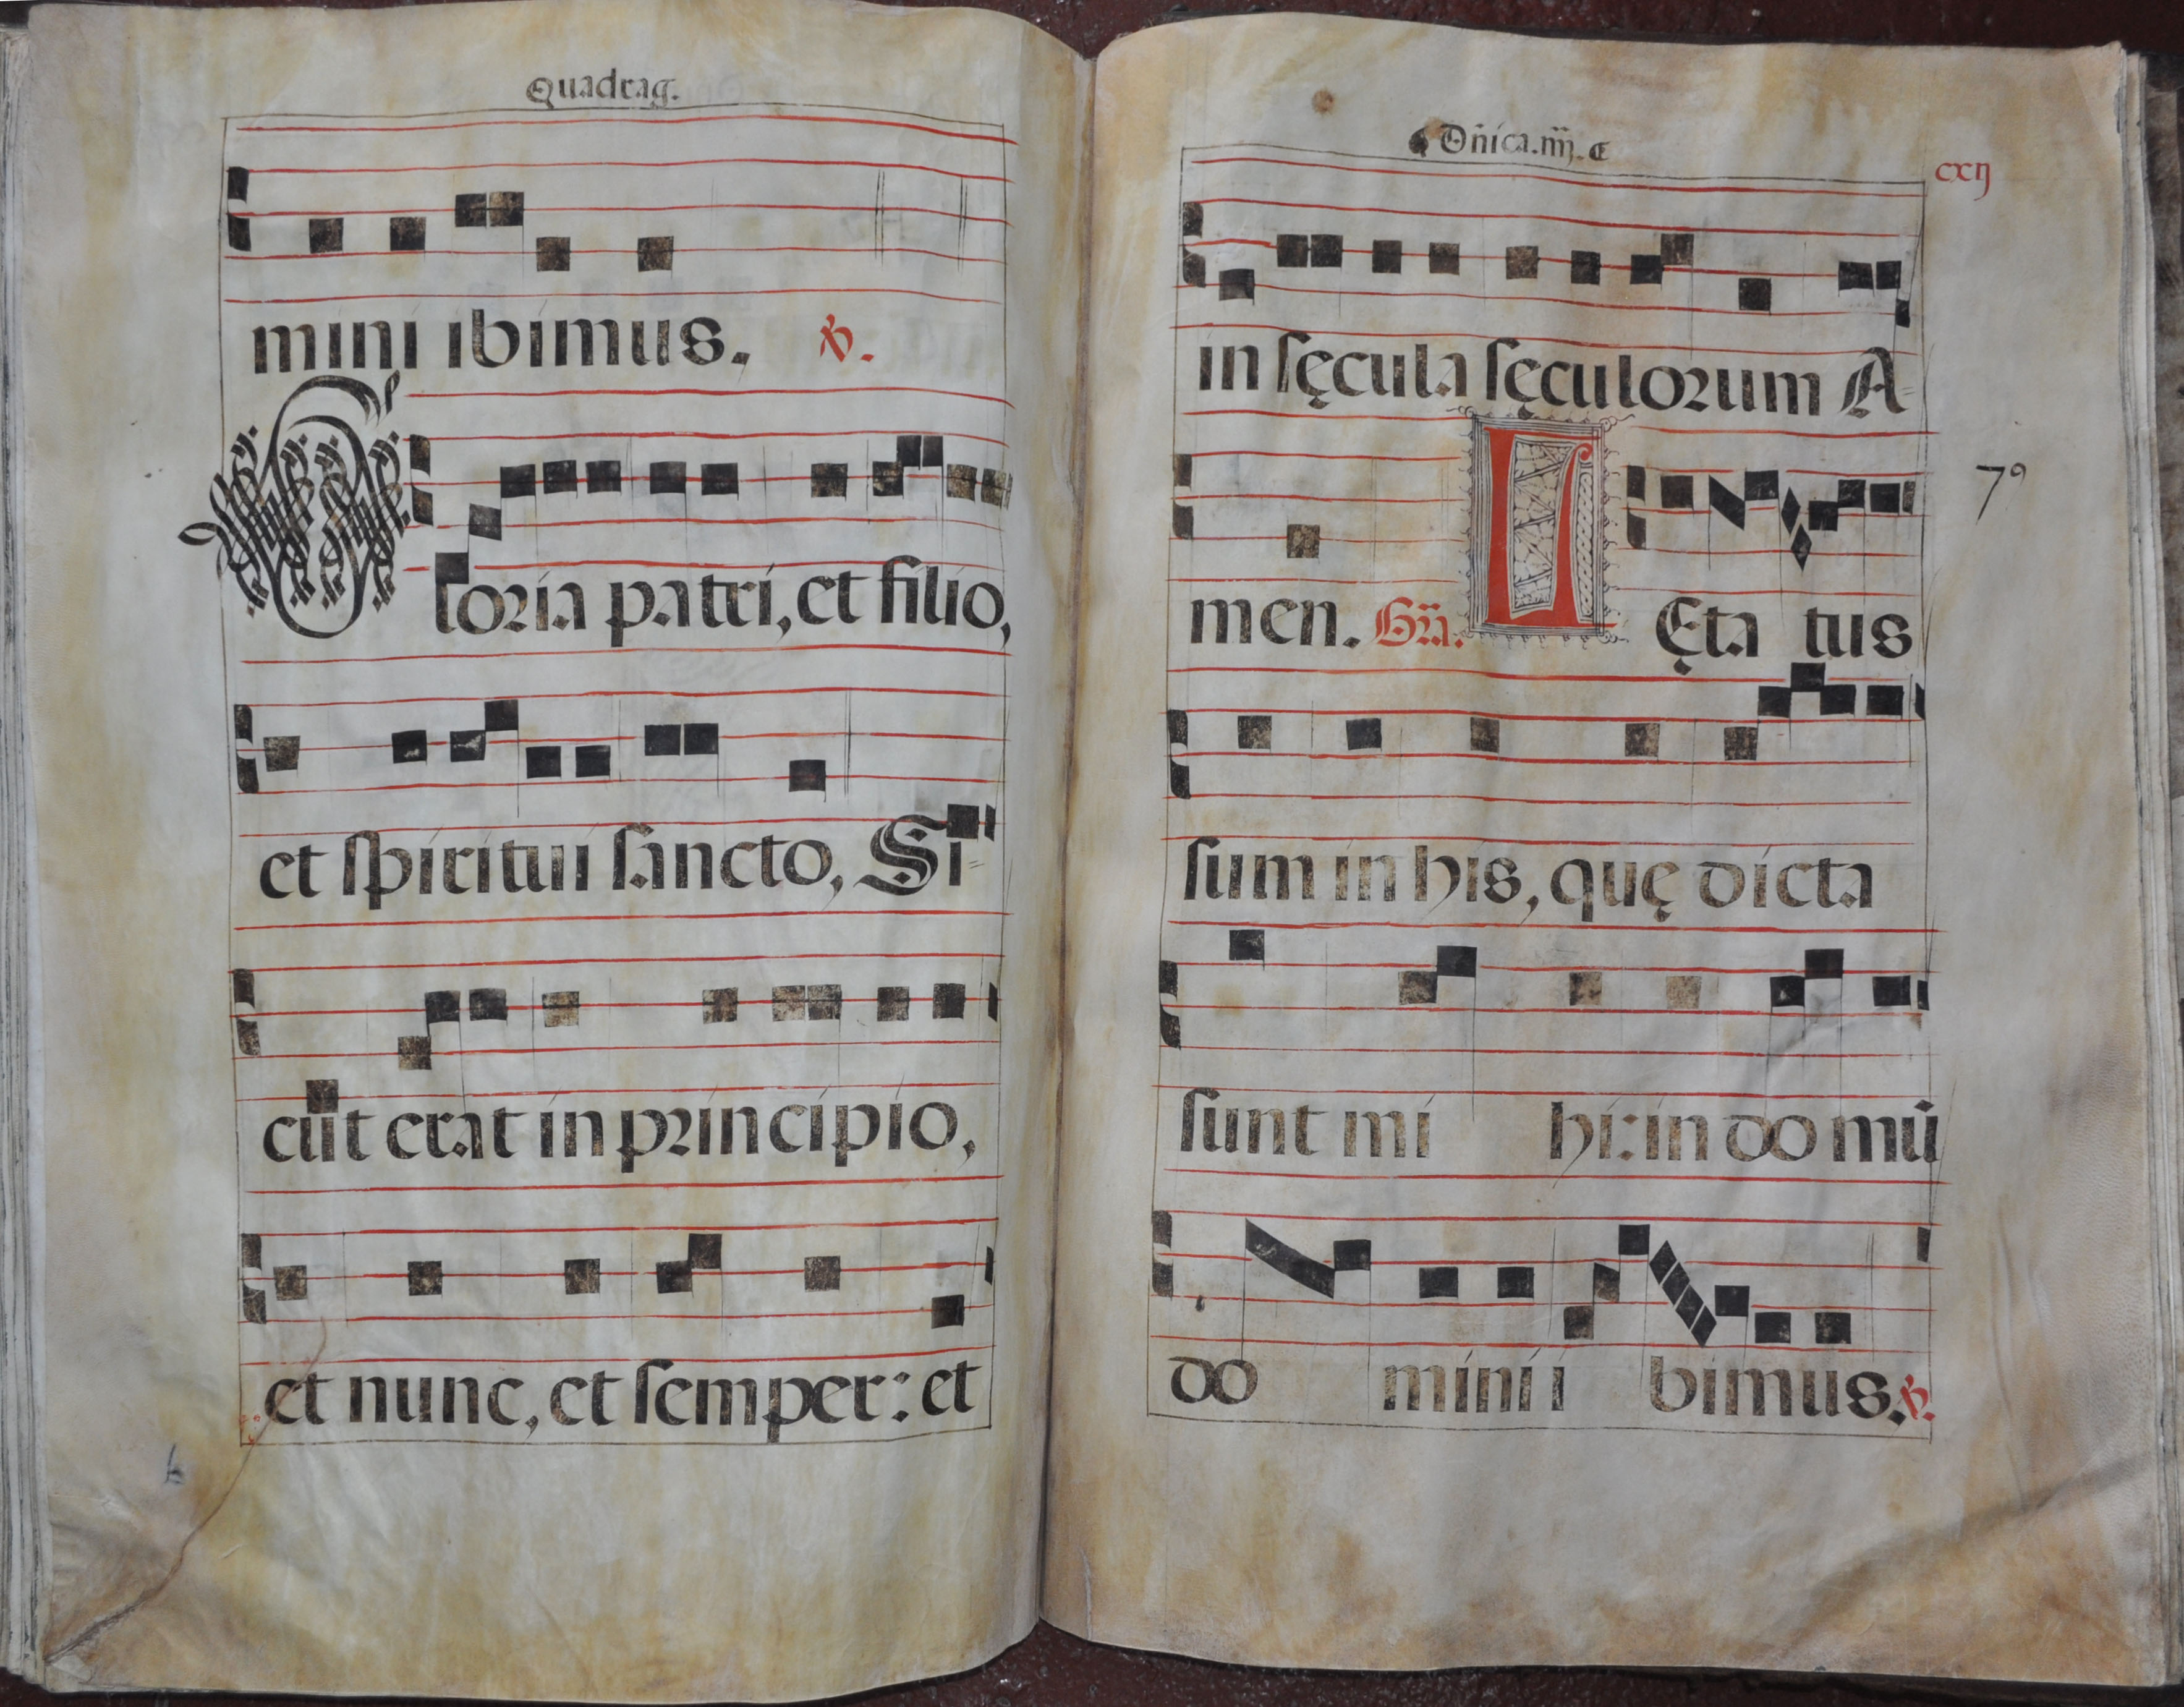 Quadrag.
mini ibimus. ℣.
Gloria patri, et filio,
et spiritui sancto, Si-
cut erat in principio,
et nunc, et semper: et
Dñica.iiij.
cxij
in sęcula sęculorum A-
men. Gr̃a. LĘta tus
79
sum in his, quę dicta
sunt mi hi: in do mũ
do mini i bimus. ℣.